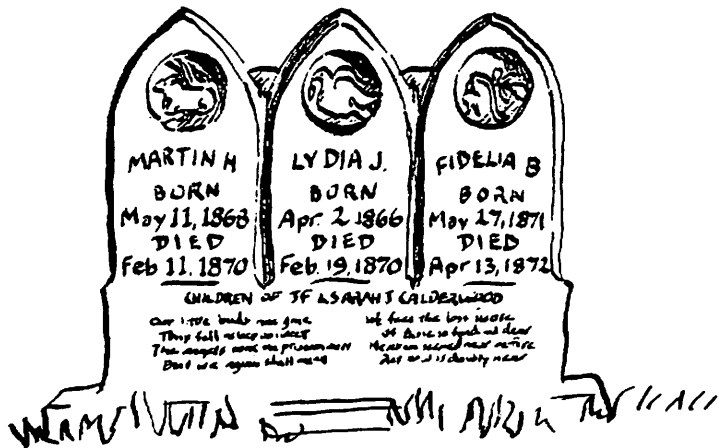 MARTIN H
BORN
May 11, 1868
DIED
Feb 11. 1870
LYDIA J.
BORN
Apr. 2 1866
DIED
Feb. 19, 1870
FIDELIA B
BORN
May 27, 1871
DIED
Apr 13, 1872
CHILDREN OF JF & SARAH J CALDERWOOD
Our little buds are gone
They fell asleep
The angels
But we again shall meet
We face the
dear
Heaven seemed near